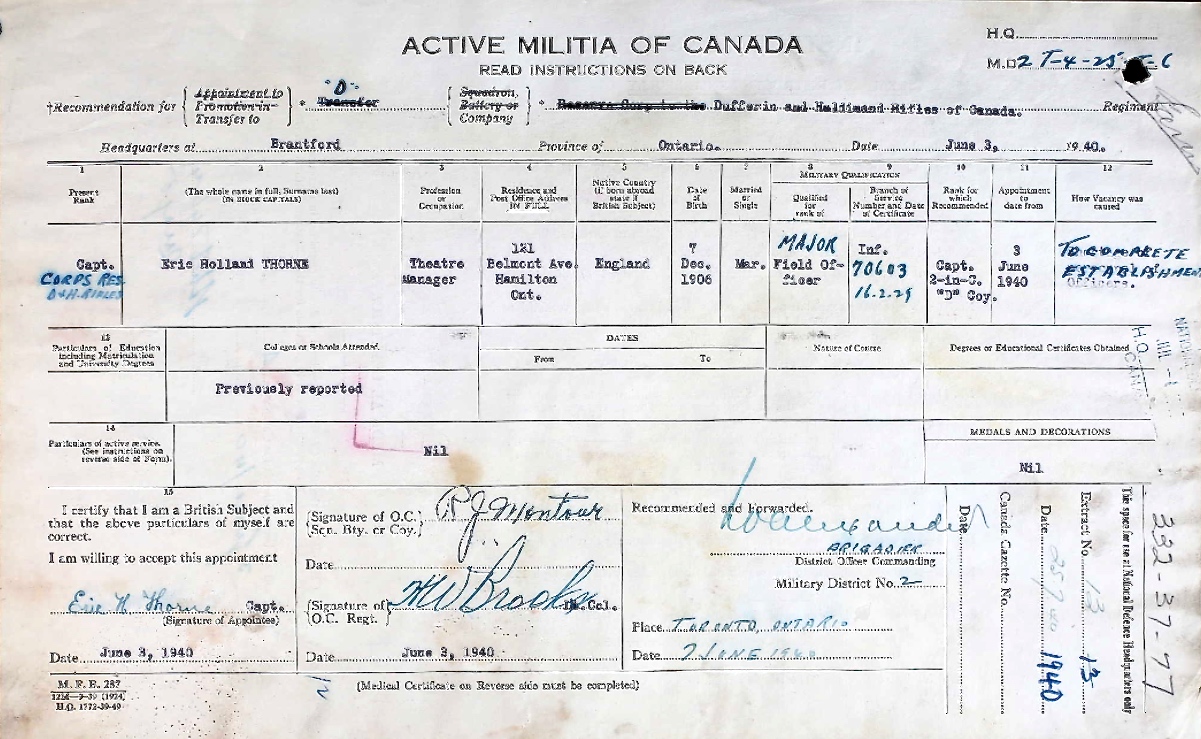 ACTIVE MILITIA OF CANADA
READ INSTRUCTIONS ON BACK
H.Q.
M.D. 2 T-4-25
†Recommendation for { Appointment to Promotion in Transfer to } * "D" Transfer { Squadron, Battery or Company } * Reserve Corp to the Dufferin and Haldimand Rifles of Canada. Regiment
Headquarters at Brantford Province of Ontario. Date June 3, 1940.
1 2 3 4 5 6 7 8 9 10 11 12
MILITARY QUALIFICATION
Present Rank
(The whole name in full, Surname last) (IN BLOCK CAPITALS)
Profession or Occupation
Residence and Post Office Address IN FULL
Native Country (if born abroad state if British Subject)
Date of Birth
Married or Single
Qualified for rank of
Branch of Service Number and Date of Certificate
Rank for which Recommended
Appointment to date from
How Vacancy was caused
Capt.
CORPS RES.
D&H. RIFLES
Eric Holland THORNE
Theatre Manager
121 Belmont Ave. Hamilton Ont.
England
7 Dec. 1906
Mar.
MAJOR
Field Officer
Inf.
70603
16.2.29
Capt. 2-in-C. "D" Coy.
3 June 1940
TO COMPLETE
ESTABLISHMENT
Officers.
13
Particulars of Education including Matriculation and University Degrees
Colleges or Schools Attended
DATES
From To
Nature of Course
Degrees or Educational Certificates Obtained
Previously reported
14
Particulars of active service. (See instructions on reverse side of Form).
Nil
MEDALS AND DECORATIONS
Nil
15
I certify that I am a British Subject and
that the above particulars of myself are
correct.
I am willing to accept this appointment
Eric H Thorne Capt.
(Signature of Appointee)
Date June 3, 1940
(Signature of O.C.
(Sqn. Bty. or Coy.)
R J Montour
Date
(Signature of
(O.C. Regt.
Lt. Col.
Date June 3, 1940
Recommended and Forwarded.
BRIGADIER
District Officer Commanding
Military District No. 2
Place TORONTO, ONTARIO
Date 7 JUNE 1940
Date
Canada Gazette No.
Date 1940
Extract No. 13 13
This space for use at National Defence Headquarters only
332-37-77
M. F. B. 287
12M—9-39 (1924)
H.Q. 1772-39-49
(Medical Certificate on Reverse side must be completed)